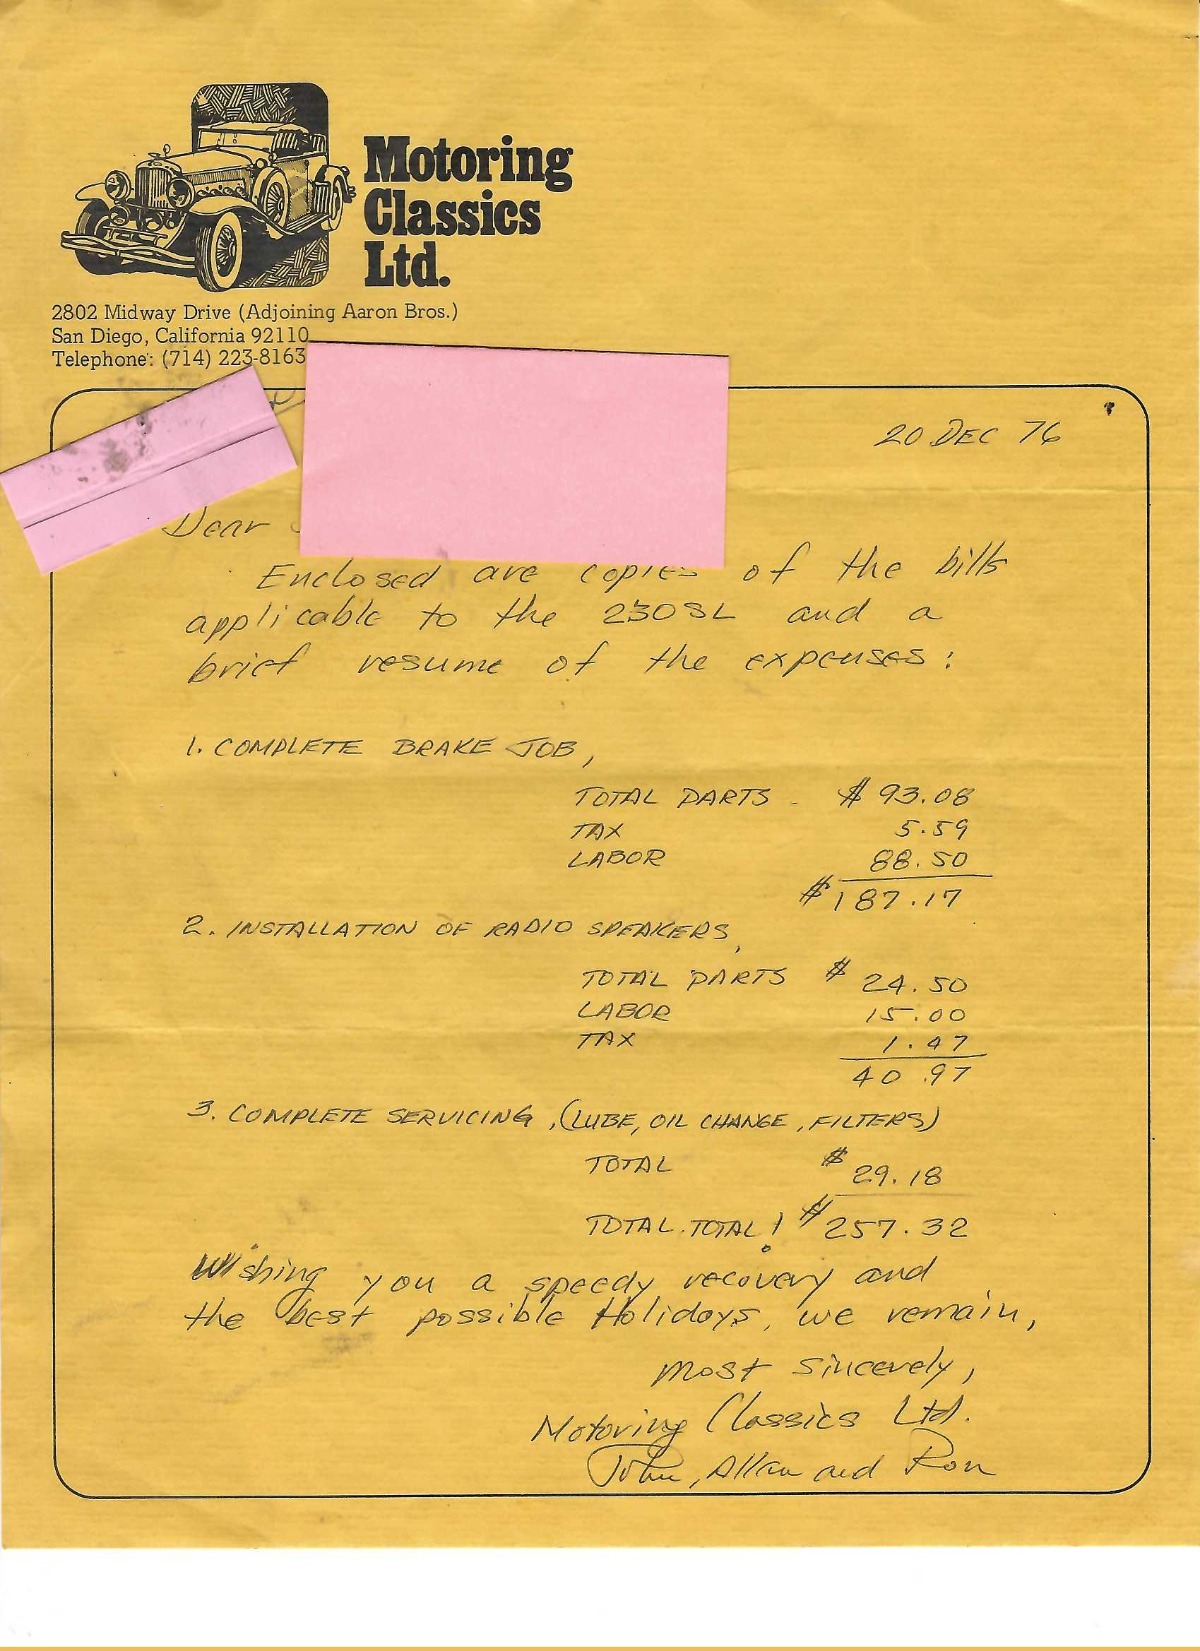 Motoring
Classics
Ltd.
2802 Midway Drive (Adjoining Aaron Bros.)
San Diego, California 92110
Telephone: (714) 223-8163
20 DEC 76
Dear
Enclosed are copies of the bills
applicable to the 230SL and a
brief resume of the expenses:
1. COMPLETE BRAKE JOB,
TOTAL PARTS - $ 93.08
TAX 5.59
LABOR 88.50
$187.17
2. INSTALLATION OF RADIO SPEAKERS,
TOTAL PARTS $ 24.50
LABOR 15.00
TAX 1.47
40.97
3. COMPLETE SERVICING, (LUBE, OIL CHANGE, FILTERS)
TOTAL $ 29.18
TOTAL TOTAL! $257.32
Wishing you a speedy recovery and
the best possible Holidays, we remain,
Most Sincerely,
Motoring Classics Ltd.
John, Allan and Ron